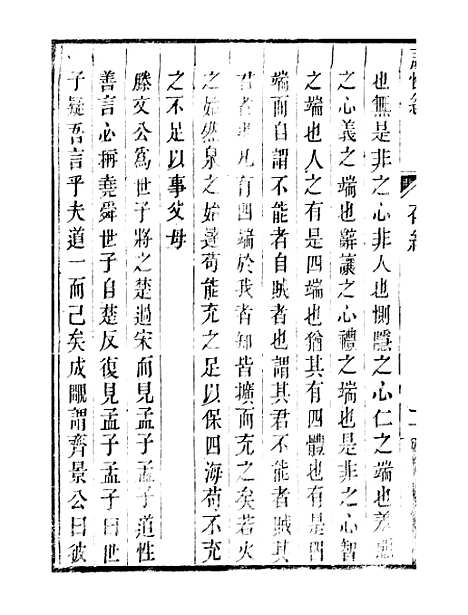 也無是非之心非人也惻隱之心仁之端也羞惡
之心義之端也辭讓之心禮之端也是非之心智
之端也人之有是四端也猶其有四體也有是四
端而自謂不能者自賊者也謂其君不能者賊其
君者也凡有四端於我者知皆擴而充之矣若火
之始然泉之始達苟能充之足以保四海苟不充
之不足以事父母
滕文公爲世子將之楚過宋而見孟子孟子道性
善言必稱堯舜世子自楚反復見孟子孟子曰世
子疑吾言乎夫道一而已矣成覵謂齊景公曰彼